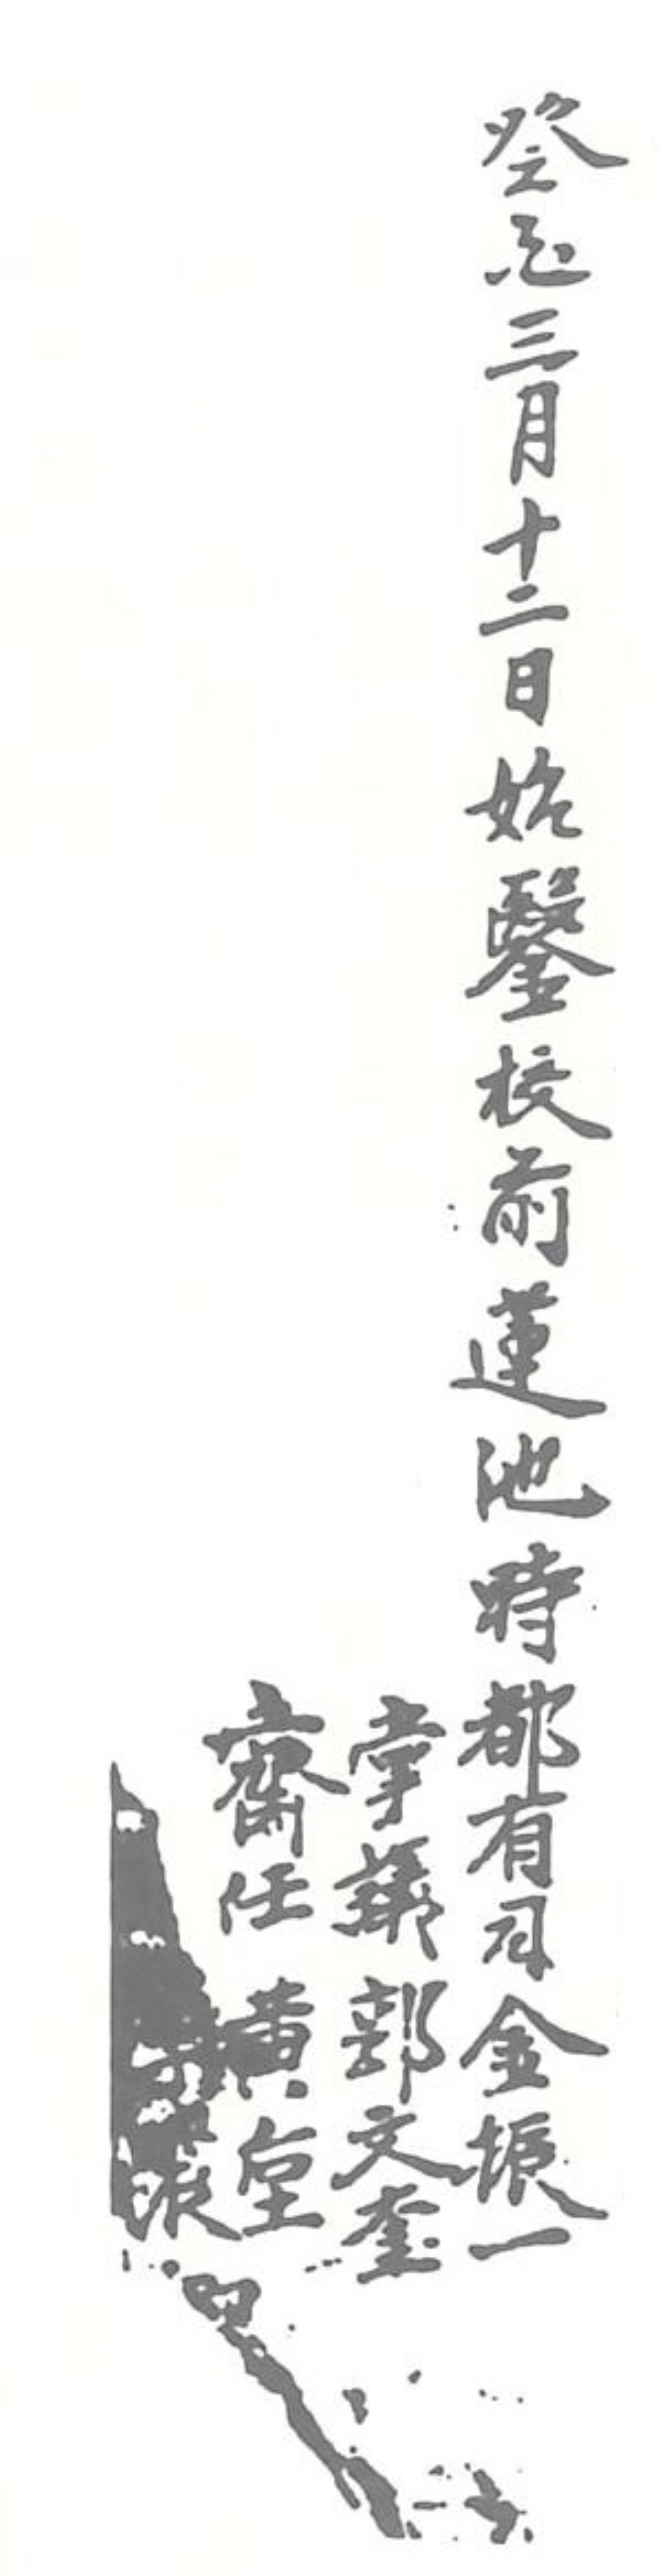 癸亥三月十二日始鑿校前蓮池時都有司金振一
掌議郭文奎
齋任黃